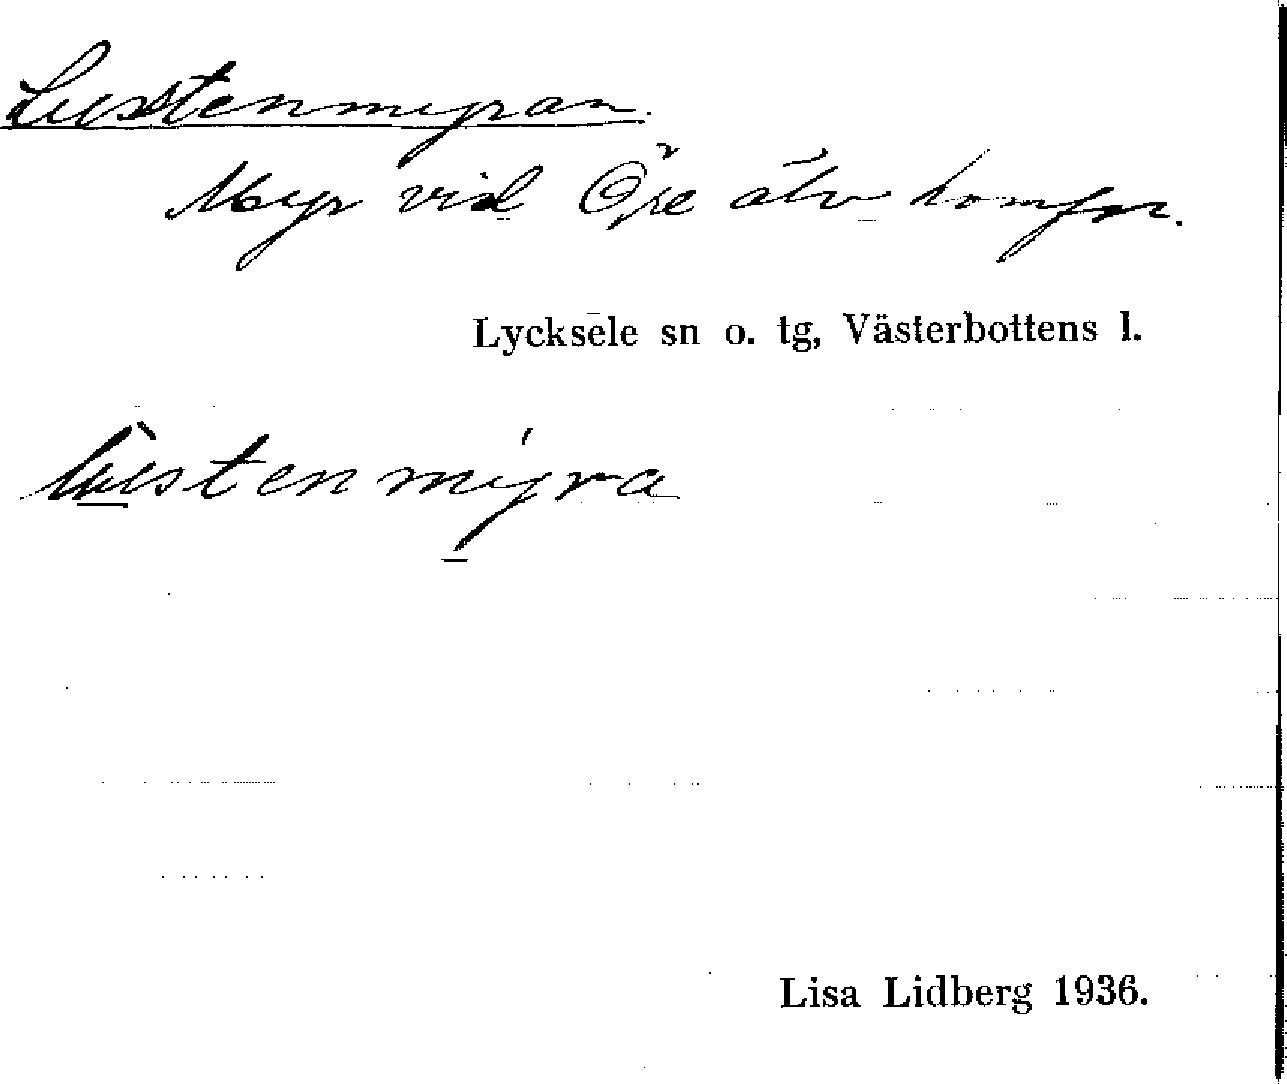 Lustenmyran.
Myr vid Öre älv
Lycksele sn o. tg, Västerbottens l.
lùstenmýra
Lisa Lidberg 1936.